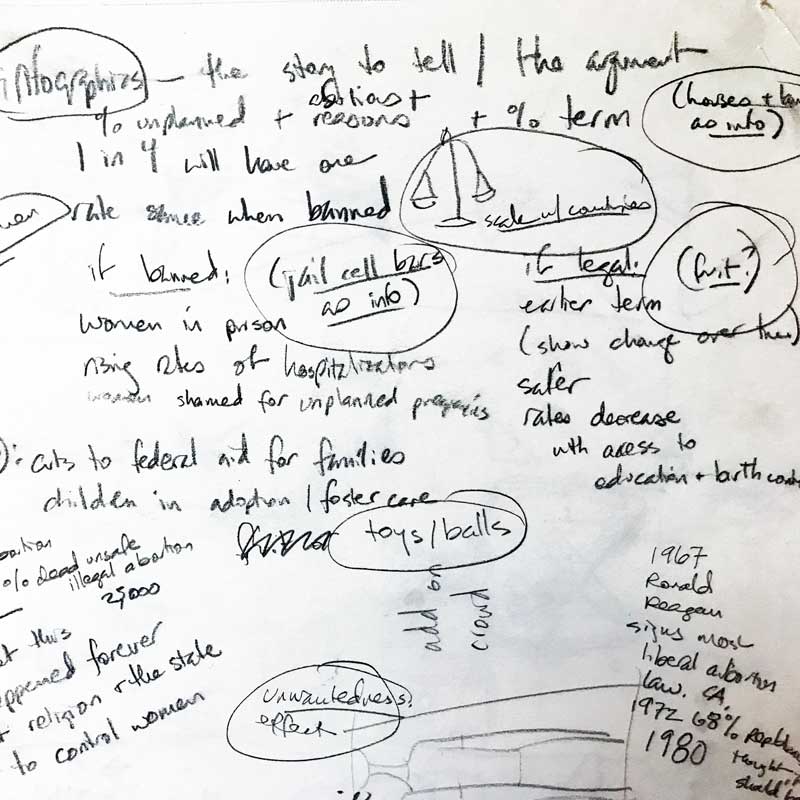 infographics — the story to tell / the argument
% unplanned + abortions + reasons + % term
(houses +
as info)
1 in 4 will have one
rate same when banned
scale w/ countries
if banned:
(jail cell bars
as info)
if legal:
(fruit?)
women in prison
earlier term
rising rates of hospitalizations
(show change over time)
women shamed for unplanned pregnancies
safer
rates decrease
with access to
education + birth
: cuts to federal aid for families
children in adoption / foster care
toys/balls
% dead unsafe
illegal abortion
25,000
add on
crowd
this
forever
religion + the state
to control women
unwantedness
effect
1967
Ronald
Reagan
signs most
liberal abortion
law. CA.
1972 68%
1980 thought
should